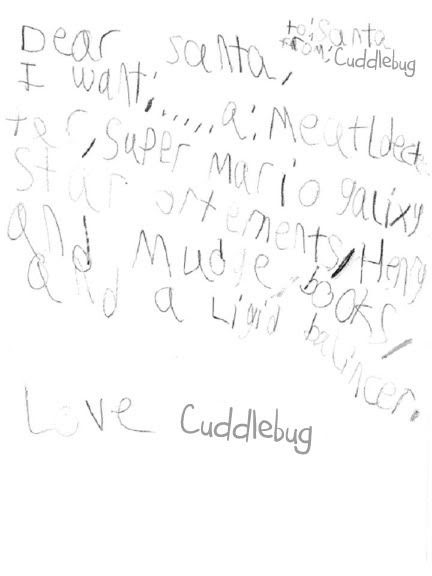 to: Santa
from: Cuddlebug
Dear santa,
I want;.....a: Meatldec
ter, Super Mario galixy
Star ortements, Henry
and Mudge books,
and a Ligid balincer.
Love Cuddlebug